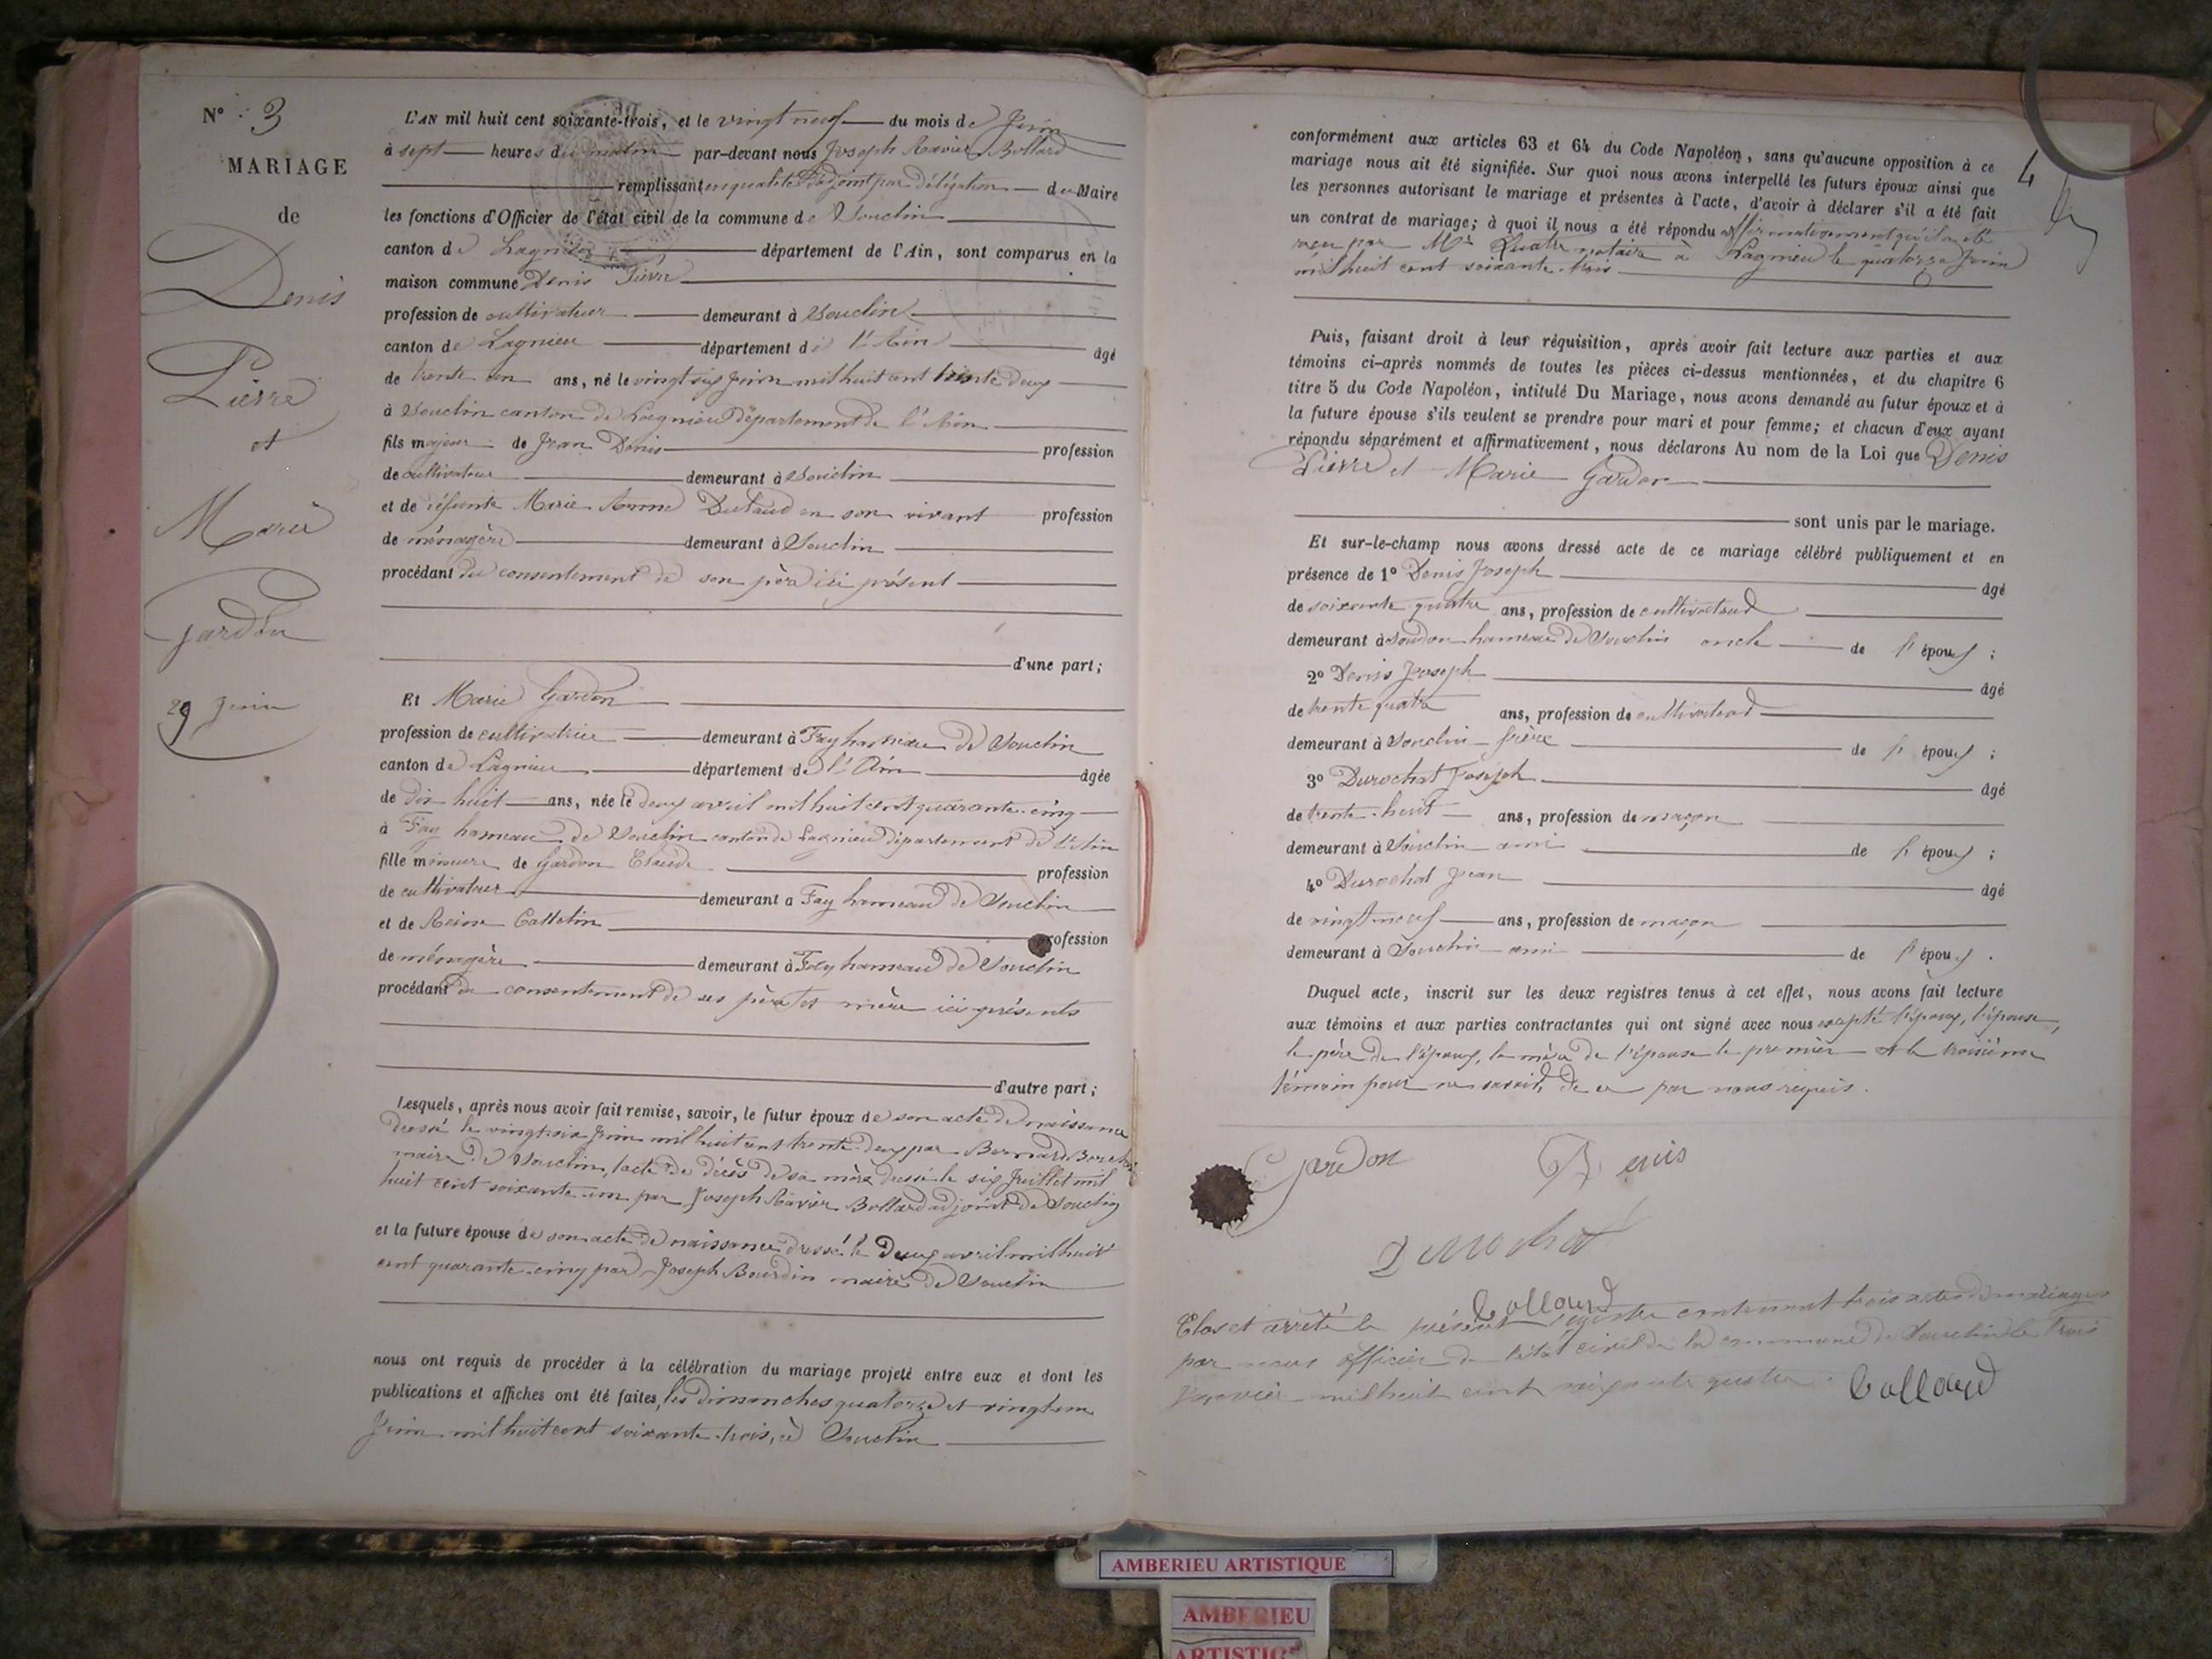 N° 3
MARIAGE
de
Denis
Pierre
et
Marie
Gardon
29 Juin
L'AN mil huit cent soixante-trois, et le vingt neuf du mois de Juin
à sept heures du matin par-devant nous Joseph Xavier Bollard
remplissant en qualité d'adjoint par délégation du Maire
les fonctions d'Officier de l'état civil de la commune de Souclin
canton de Lagnieu département de l'Ain, sont comparus en la
maison commune Denis Pierre
profession de cultivateur demeurant à Souclin
canton de Lagnieu département de l'Ain âgé
de trente un ans, né le vingt six Juin mil huit cent trente deux
à Souclin canton de Lagnieu Département de l'Ain
fils majeur de Jean Denis profession
de cultivateur demeurant à Souclin
et de défunte Marie Anne en son vivant profession
de ménagère demeurant à Souclin
procédant du consentement de son père ici présent
d'une part;
Et Marie Gardon
profession de cultivatrice demeurant à Fay hameau de Souclin
canton de Lagnieu département de l'Ain âgée
de dix huit ans, née le deux avril mil huit cent quarante cinq
à Fay hameau de Souclin canton de Lagnieu Département de l'Ain
fille mineure de Gardon Claude profession
de cultivateur demeurant à Fay hameau de Souclin
et de Reine Cattelin profession
de ménagère demeurant à Fay hameau de Souclin
procédant du consentement de ses père et mère ici présents
d'autre part;
Lesquels, après nous avoir fait remise, savoir, le futur époux de son acte de naissance
dressé le vingt six Juin mil huit cent trente deux par Bernard
maire de Souclin, l'acte de décès de sa mère dressé le six Juillet mil
huit cent soixante un par Joseph Xavier Bollard adjoint de Souclin
et la future épouse de son acte de naissance dressé le Deux avril mil huit
cent quarante cinq par Joseph Bourdin maire de Souclin
nous ont requis de procéder à la célébration du mariage projeté entre eux et dont les
publications et affiches ont été faites, les dimanches quatorze et vingt un
Juin mil huit cent soixante trois, à Souclin
4
conformément aux articles 63 et 64 du Code Napoléon, sans qu'aucune opposition à ce
mariage nous ait été signifiée. Sur quoi nous avons interpellé les futurs époux ainsi que
les personnes autorisant le mariage et présentes à l'acte, d'avoir à déclarer s'il a été fait
un contrat de mariage; à quoi il nous a été répondu affirmativement qu'il a été
reçu par Me Quatre notaire à Lagnieu le quatorze Juin
mil huit cent soixante trois
Puis, faisant droit à leur réquisition, après avoir fait lecture aux parties et aux
témoins ci-après nommés de toutes les pièces ci-dessus mentionnées, et du chapitre 6
titre 5 du Code Napoléon, intitulé Du Mariage, nous avons demandé au futur époux et à
la future épouse s'ils veulent se prendre pour mari et pour femme; et chacun d'eux ayant
répondu séparément et affirmativement, nous déclarons Au nom de la Loi que Denis
Pierre et Marie Gardon
sont unis par le mariage.
Et sur-le-champ nous avons dressé acte de ce mariage célébré publiquement et en
présence de 1° Denis Joseph âgé
de soixante quatre ans, profession de cultivateur
demeurant à Soudon hameau de Souclin oncle de l'époux;
2° Denis Joseph âgé
de trente quatre ans, profession de cultivateur
demeurant à Souclin frère de l'époux;
3° Durochat Joseph âgé
de trente huit ans, profession de maçon
demeurant à Souclin ami de l'époux;
4° Durochat Jean âgé
de vingt neuf ans, profession de maçon
demeurant à Souclin ami de l'époux.
Duquel acte, inscrit sur les deux registres tenus à cet effet, nous avons fait lecture
aux témoins et aux parties contractantes qui ont signé avec nous excepté l'époux, l'épouse,
le père de l'époux, la mère de l'épouse le premier et le troisième
témoin pour ne savoir, de ce par nous requis.
Gardon Denis
Durochat
Bollard
Clos et arrêté le présent registre contenant trois actes de mariages
par nous officier de l'état civil de la commune de Souclin le trois
Janvier mil huit cent soixante quatre. Bollard
AMBERIEU ARTISTIQUE
AMBERIEU
ARTISTIQUE